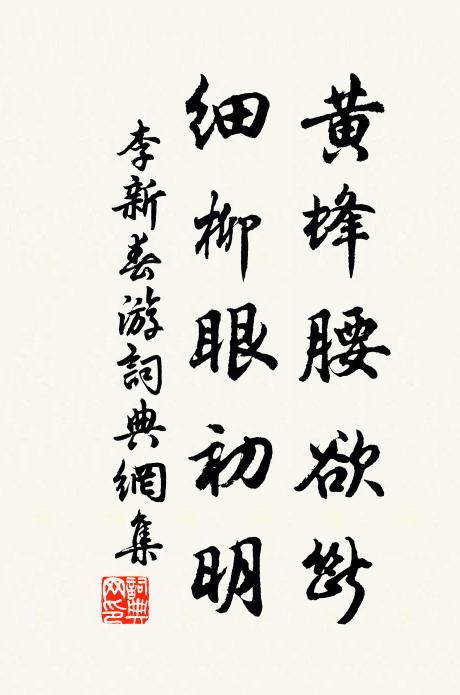 黄蜂腰欲断
细柳眼初明
李新春游詞典網集
詞典网印